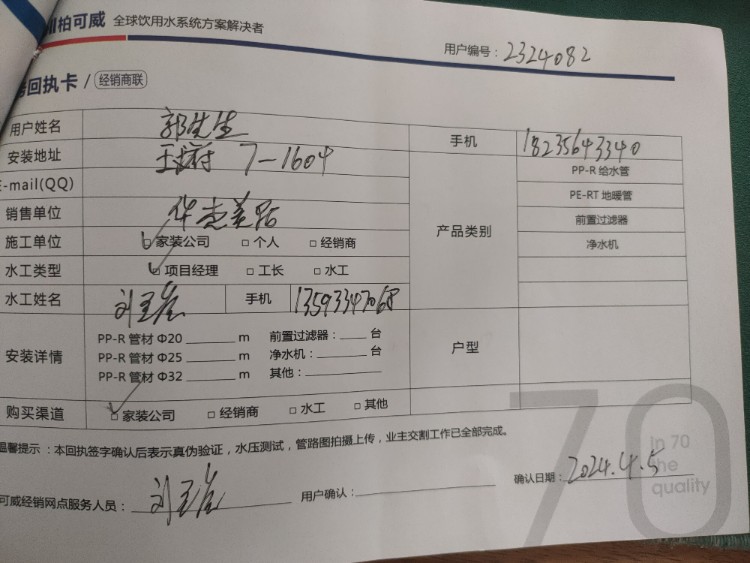 柏可威 全球饮用水系统方案解决者
用户编号：2324082
回执卡 / 经销商联
用户姓名 郭先生 手机 18235643340
安装地址 7-1604 产品类别 PP-R 给水管
E-mail(QQ) PE-RT 地暖管
销售单位 华杰美居 前置过滤器
施工单位 家装公司 □ 个人 □ 经销商 净水机
水工类型 项目经理 □ 工长 □ 水工
水工姓名 手机 13593347068
安装详情 PP-R 管材 Φ20 ______ m 前置过滤器：____ 台 户型
PP-R 管材 Φ25 ______ m 净水机：____ 台
PP-R 管材 Φ32 ______ m 其他：______
购买渠道 □ 家装公司 □ 经销商 □ 水工 □ 其他
温馨提示：本回执签字确认后表示真伪验证，水压测试，管路图拍摄上传，业主交割工作已全部完成。
可威经销网点服务人员：
用户确认：
确认日期：2024.4.5
70
In 70
the
quality